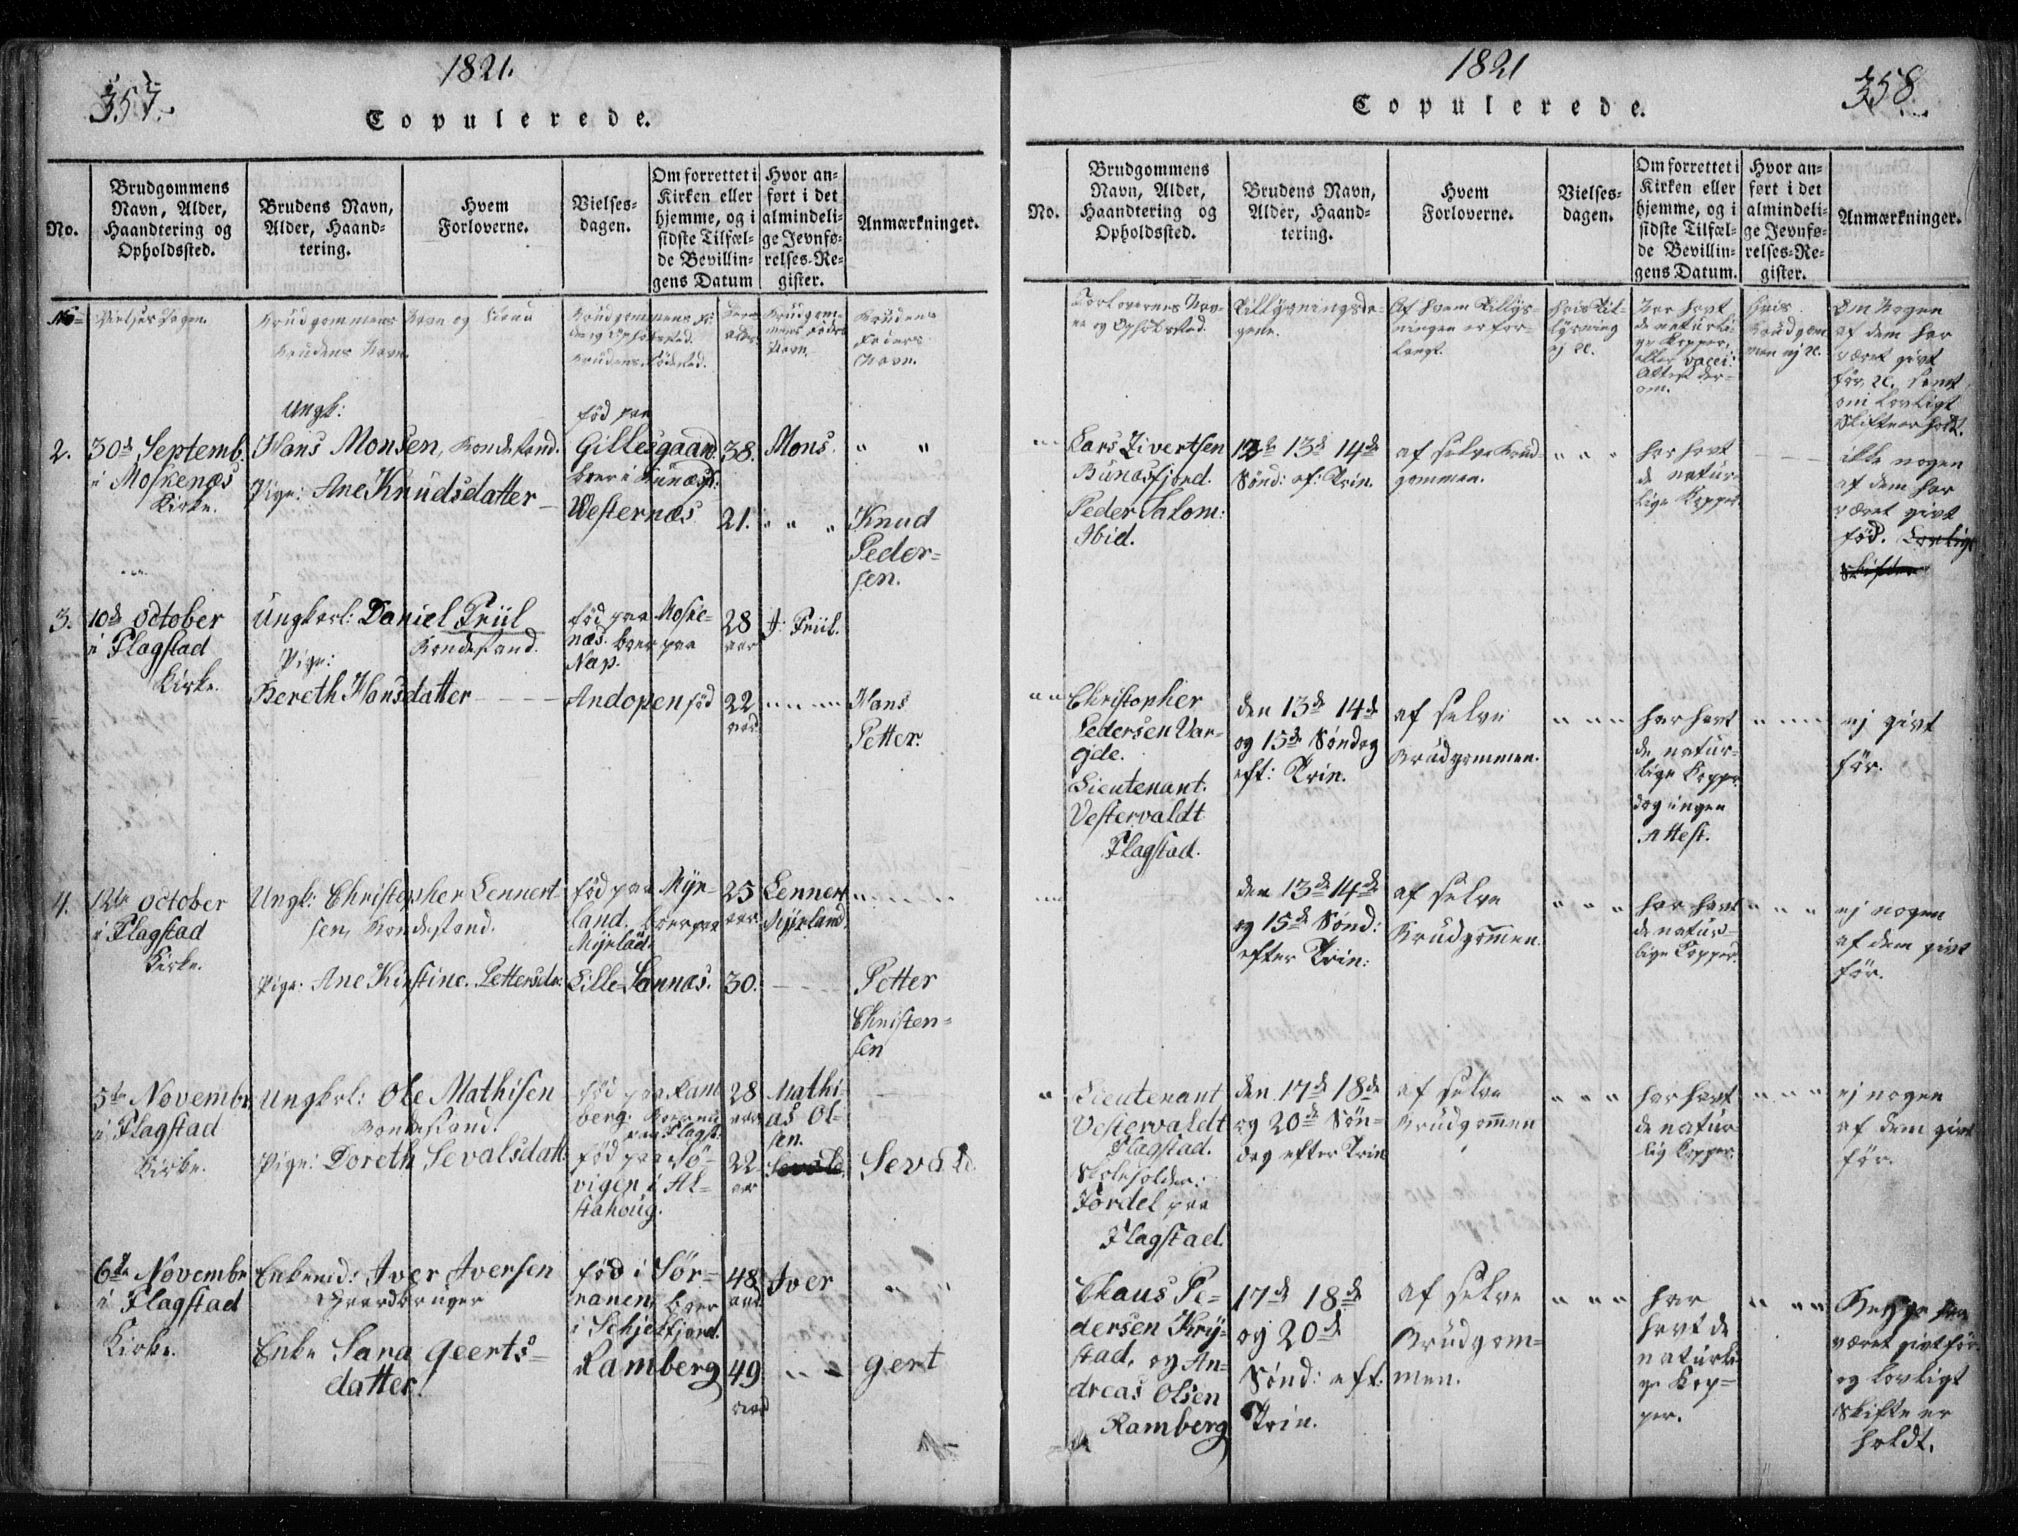 357.
1821.
Copulerede.
No.
Brudgommens
Navn, Alder,
Haandtering og
Opholdssted.
Brudens Navn,
Alder, Haand-
tering.
Hvem
Forloverne.
Vielses-
dagen.
Om forrettet i
Kirken eller
hjemme, og i
sidste Tilfæl-
de Bevillin-
gens Datum
Hvor an-
ført i det
almindeli-
ge Jevnfø-
relses-Re-
gister.
Anmærkninger.
No
Vielses Dagen.
Brudgommens Navn og Stand
Brudens Navn.
Brudgommens Fö-
Brudens Födested.
Deres
Alder
Brudgom-
mens Faders
Navn.
Brudens
Faders
Navn.
2.
30d Septemb.
i Moskenæs
Kirke.
Ungk:
Hans Monsen, Bondestand.
Pige: Ane Knudsdatter
föd paa
Gillesgaard
boer i Bunæsf:
Westernæs
38.
21.
Mons.
Knud
Peder-
sen.
3.
10d October
i Flagstad
Kirke.
Ungkarl: Daniel Friil
Bondestand.
Pige:
Bereth Hansdatter
föd paa Moske-
næs. boer paa
Nap.
Andopen föd
28
aar
22
aar.
J: Friil.
Hans
Petter.
4.
12te October
i Flagstad
Kirke.
Ungk: Christopher Lennert
sen, Bondestand.
Pige: Ane Kirstine Pettersdr:
föd paa Myr-
land. boer paa
Myrlad.
Lille Sannæs.
25
aar.
30.
Lennert
Myrland.
Petter
Christen-
sen
5te Novembr.
i Flagstad
Kirke.
Ungkrl: Ole Mathisen
Bondestand.
Pige: Doreth Sevalsdatt:
föd paa Ram
berg. Boer nu
paa Flagst:
föd paa Sö-
vigen i Al-
stahoug.
28
aar
22
aar
Mathi-
as Ol-
sen.
Sevald.
Sevald.
6te Novembr
i Flagstad
Kirke.
Enkemd: Iver Iversen
Gaardbruger
Enke Sara Geerts-
datter.
föd i Sör-
ranen, boer
i Schjelfjord.
Ramberg
48
aar
49
aar
Iver
gert
1821
358.
Copulerede.
No.
Brudgommens
Navn, Alder,
Haandtering og
Opholdssted.
Brudens Navn,
Alder, Haand-
tering.
Hvem
Forloverne.
Vielses-
dagen.
Om forrettet i
Kirken eller
hjemme, og i
sidste Tilfæl-
de Bevillin-
gens Datum.
Hvor an-
ført i det
almindeli-
ge Jevnfø-
relses-Re-
gister.
Anmærkninger.
Forlovernes Nav-
ne og Opholdssted.
Tillysningsda-
gene.
Af hvem Tillys-
ningen er for-
langt.
Hvis Til-
lysning
ej &c.
Har havt
de naturli-
ge Kopper,
eller vacci:
Attest der-
om.
Hvis
Brudgom
men ej &c.
Om Nogen
af dem har
været givt
för &c. samt
om lovligt
Skifte er holdt.
Lars Zivertsen
Bunæsfjord.
Peder Salom:
Ibid.
12te 13de 14de
Sönd: ef: Trin.
af selve Brud-
gommen.
har havt
de natur-
lige Kopper.
ikke nogen
af dem har
været givt
föd. Lovligt
Skifter
Christopher
Pedersen Var-
gde.
Lieutenant.
Vestervaldt
Flagstad.
den 13de 14de
og 15de Söndag
eft: Trin.
af selve
Brudgommen.
har havt
de natur-
lige Kopper
dog ingen
Attest.
ej givt
för.
den 13de 14de
og 15de Sönd:
efter Trin:
af selve
Brudgommen.
har havt
de natur-
lige Kopper.
ej nogen
af dem givt
för.
Lieutenant
Vestervaldt
Flagstad.
Skoleholder:
Jordel paa
Flagstad.
den 17de 18de
og 20de Sön-
dag efter Trin
af selve
Brudgommen
har havt
de natur-
lig Kopper.
ej nogen
af dem givt
för.
Claus Pe-
dersen Kry-
stad, og An-
dreas Olsen
Ramberg
17de 18de
og 20de
Sönd: eft:
Trin.
af selve
Brudgom-
men.
har
havt de
naturli-
ge Kop-
per.
Begge har
været givt för
og lovligt
Skifte er
holdt.